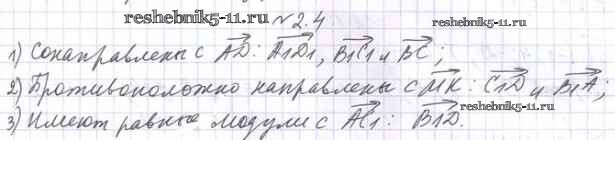 reshebnik5-11.ru
№ 2.4
1) Сонаправлены с AD: A1D1, B1C1 и BC;
2) Противоположно направлены с MK: C1D и B1A;
reshebnik5-11.ru
3) Имеют равные модули с AC1: B1D.